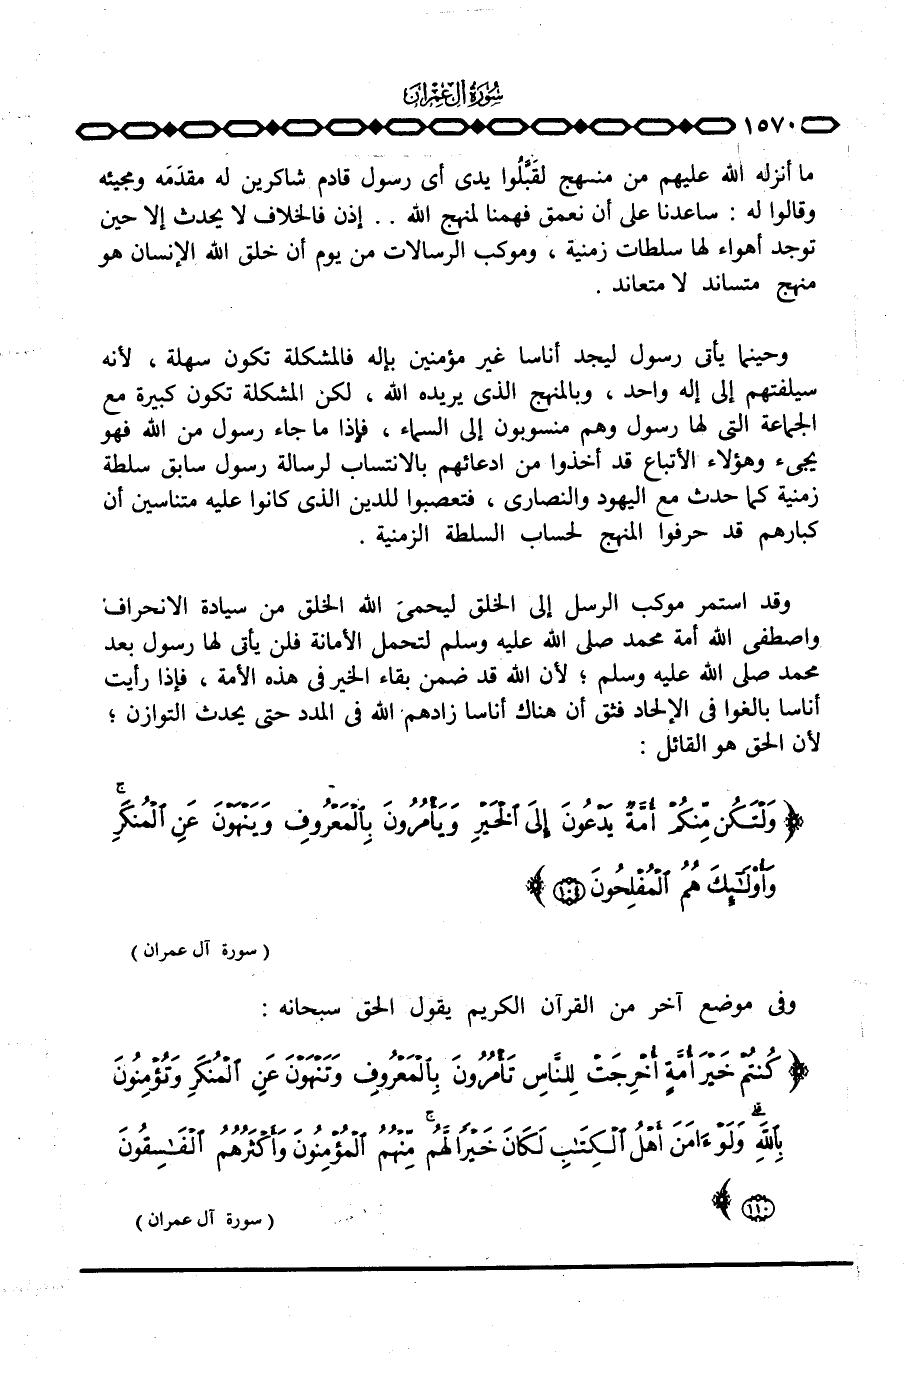 سُورَةُ آلِ عِمْرَان
١٥٧٠
ما أنزله الله عليهم من منهج لقَبَّلُوا يدى أى رسول قادم شاكرين له مقدَمَه ومجيئه
وقالوا له : ساعدنا على أن نعمق فهمنا لمنهج الله . . إذن فالخلاف لا يحدث إلا حين
توجد أهواء لها سلطات زمنية ، وموكب الرسالات من يوم أن خلق الله الإنسان هو
منهج متساند لا متعاند .
وحينما يأتى رسول ليجد أناسا غير مؤمنين بإله فالمشكلة تكون سهلة ، لأنه
سيلفتهم إلى إله واحد ، وبالمنهج الذى يريده الله ، لكن المشكلة تكون كبيرة مع
الجماعة التى لها رسول وهم منسوبون إلى السماء ، فإذا ما جاء رسول من الله فهو
يجىء وهؤلاء الأتباع قد أخذوا من ادعائهم بالانتساب لرسالة رسول سابق سلطة
زمنية كما حدث مع اليهود والنصارى ، فتعصبوا للدين الذى كانوا عليه متناسين أن
كبارهم قد حرفوا المنهج لحساب السلطة الزمنية .
وقد استمر موكب الرسل إلى الخلق ليحمىَ الله الخلق من سيادة الانحراف
واصطفى الله أمة محمد صلى الله عليه وسلم لتحمل الأمانة فلن يأتى لها رسول بعد
محمد صلى الله عليه وسلم ؛ لأن الله قد ضمن بقاء الخير فى هذه الأمة ، فإذا رأيت
أناسا بالغوا فى الإلحاد فثق أن هناك أناسا زادهم الله فى المدد حتى يحدث التوازن ؛
لأن الحق هو القائل :
﴿ وَلْتَكُن مِّنكُمْ أُمَّةٌ يَدْعُونَ إِلَى ٱلْخَيْرِ وَيَأْمُرُونَ بِٱلْمَعْرُوفِ وَيَنْهَوْنَ عَنِ ٱلْمُنكَرِ ۚ
وَأُوْلَـٰٓئِكَ هُمُ ٱلْمُفْلِحُونَ ١٠٤ ﴾
( سورة آل عمران )
وفى موضع آخر من القرآن الكريم يقول الحق سبحانه :
﴿ كُنتُمْ خَيْرَ أُمَّةٍ أُخْرِجَتْ لِلنَّاسِ تَأْمُرُونَ بِٱلْمَعْرُوفِ وَتَنْهَوْنَ عَنِ ٱلْمُنكَرِ وَتُؤْمِنُونَ
بِٱللَّهِ ۗ وَلَوْ ءَامَنَ أَهْلُ ٱلْكِتَـٰبِ لَكَانَ خَيْرًا لَّهُم ۚ مِّنْهُمُ ٱلْمُؤْمِنُونَ وَأَكْثَرُهُمُ ٱلْفَـٰسِقُونَ
١١٠ ﴾
( سورة آل عمران )